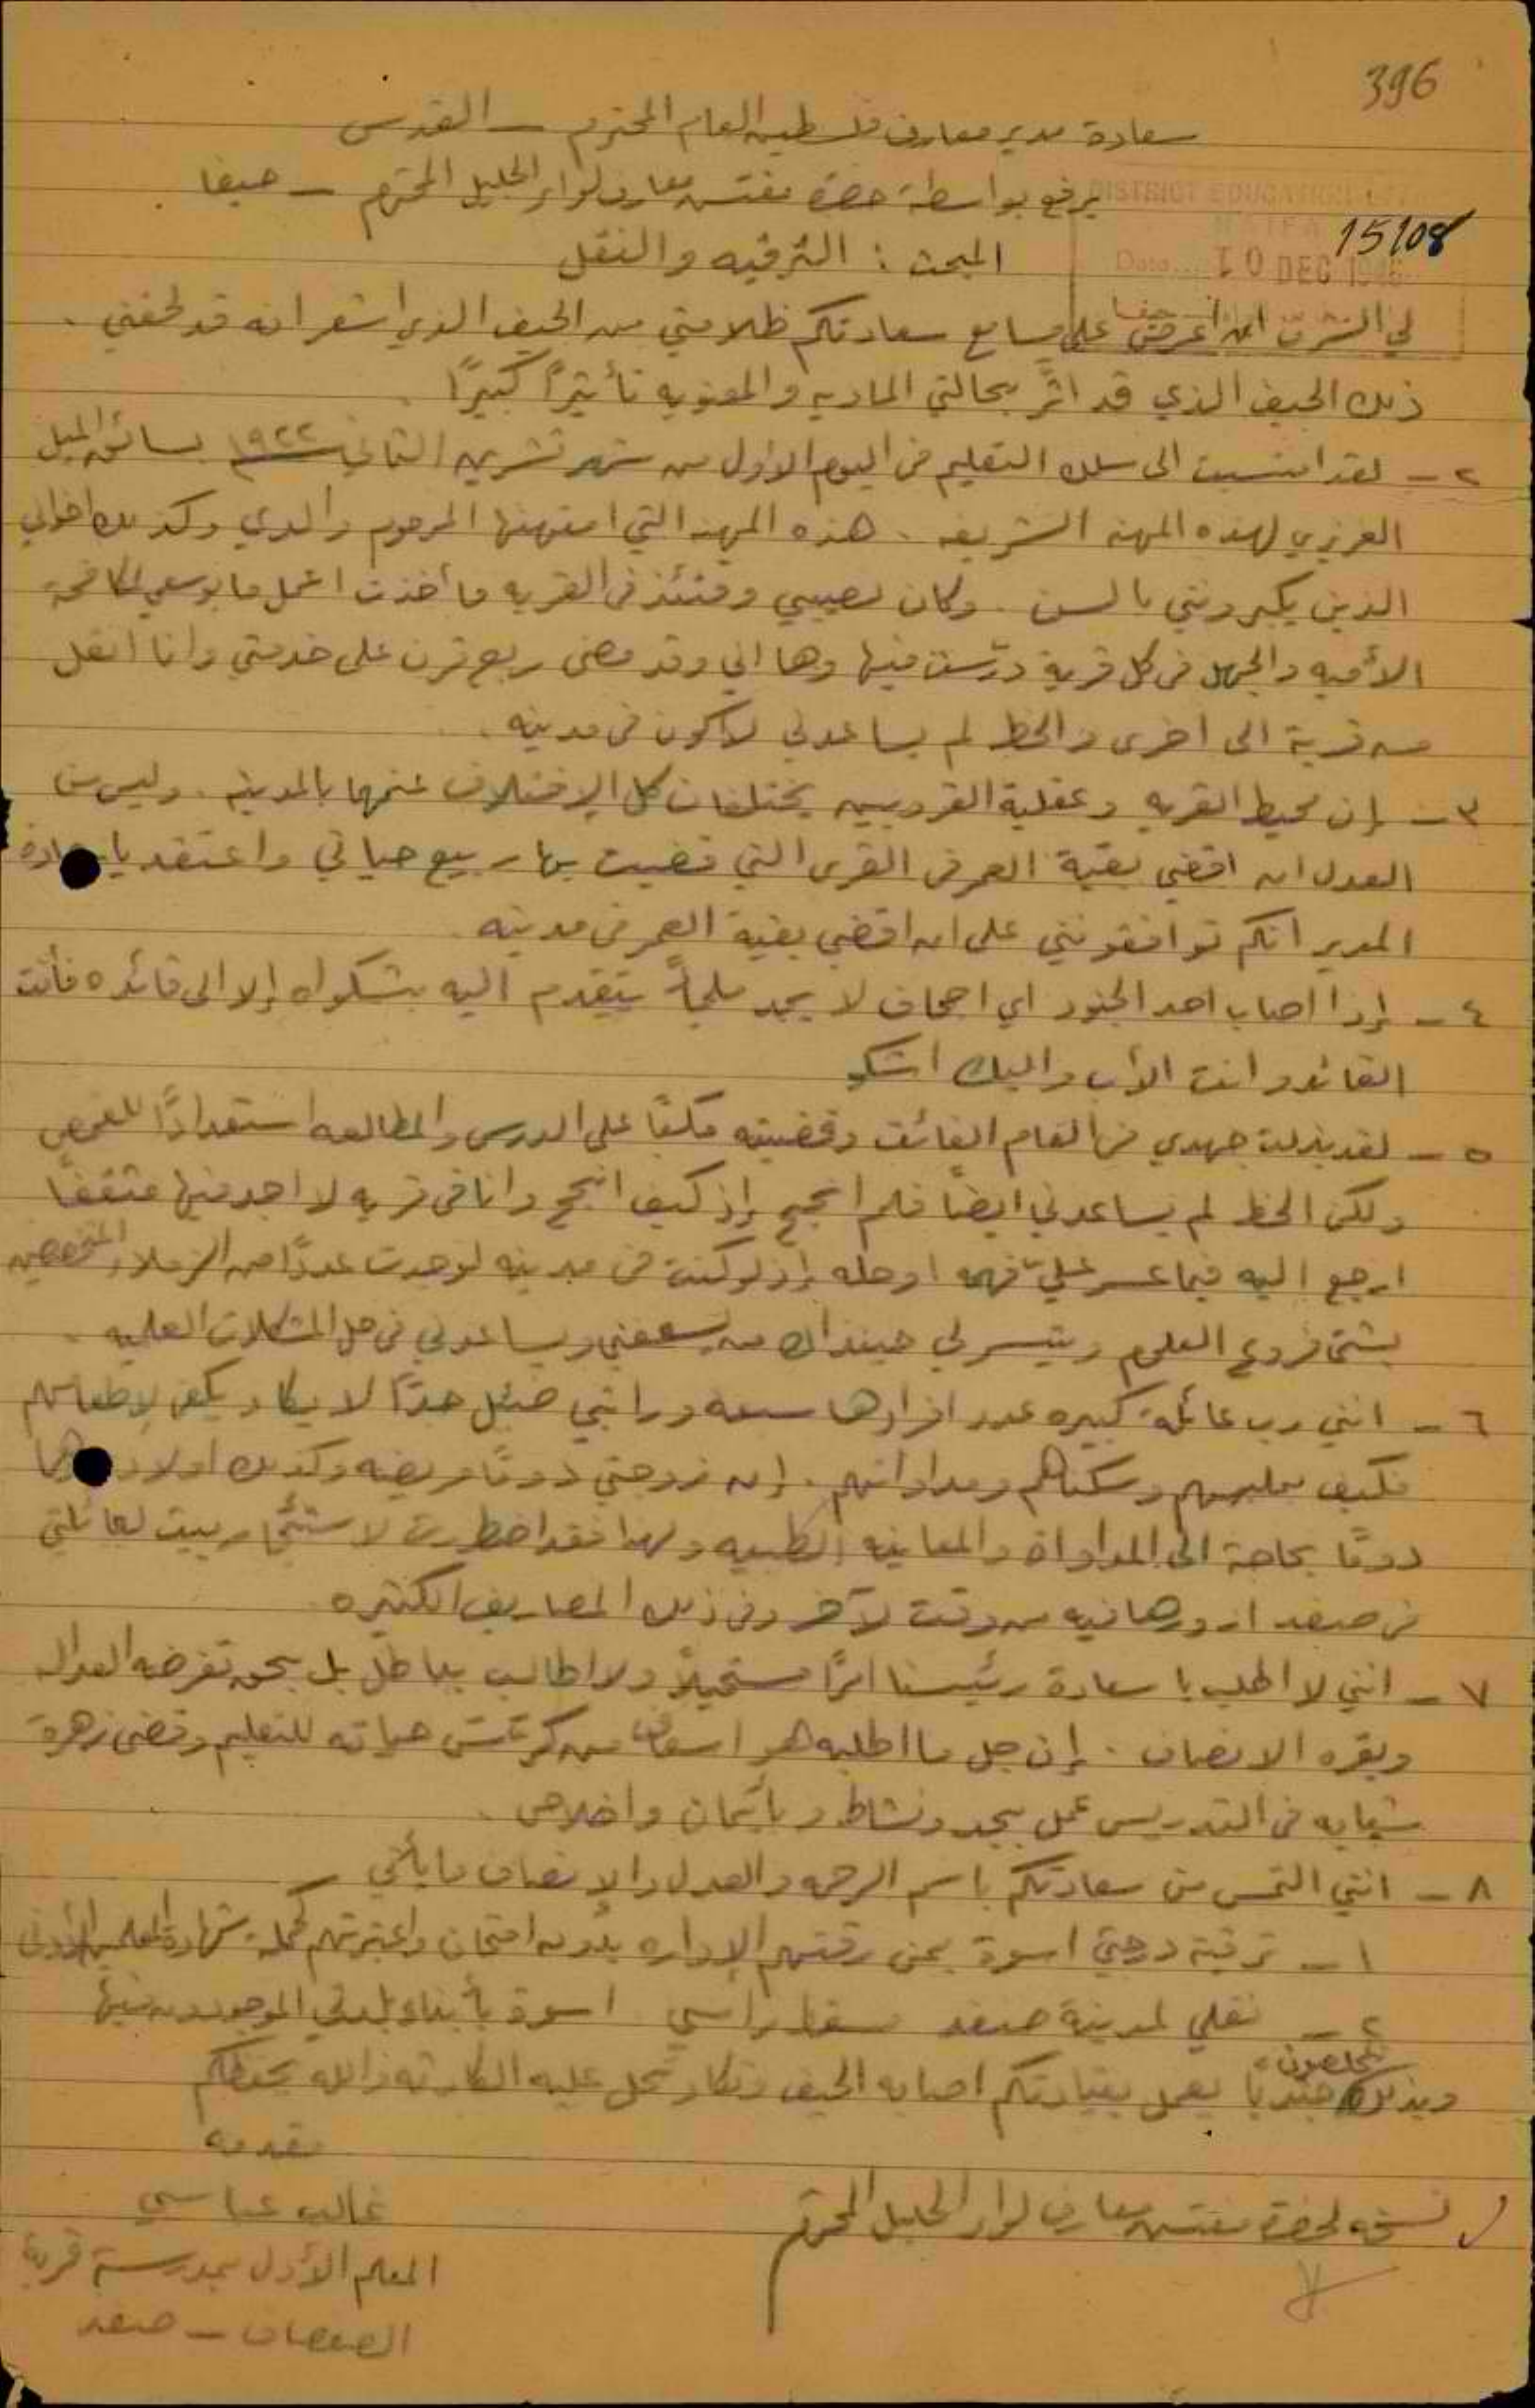 396
سعادة مدير معارف فلسطين العام المحترم – القدس
يرفع بواسطة حضرة مفتش معارف لواء الجليل المحترم – حيفا
DISTRICT EDUCATION
HAIFA
15108
Date... 10 DEC 194
المبحث : الترقيه والنقل
لي الشرف ان اعرض على مسامع سعادتكم ظلامتي من الحيف الذي اشعر انه قد لحقني .
ذلك الحيف الذي قد اثّر بحالتي الماديه والمعنويه تأثيرًا كبيرًا .
٢ – لقد انتسبت الى سلك التعليم في اليوم الاول من شهر تشرين الثاني سنة ١٩٢٢ بسائق الميل
الغريزي لهذه المهنه الشريفه . هذه المهنه التي امتهنها المرحوم والدي وكذلك اخواني
الذين يكبرونني بالسن . وكان نصيبي وقتئذ في القريه فأخذت اعمل ما بوسعي لمكافحة
الأميه والجهل في كل قرية درّست فيها وها اني وقد مضى ربع قرن على خدمتي وانا انقل
من قرية الى اخرى والحظ لم يساعدني لاكون في مدينه .
٣ – إن محيط القريه وعقلية القرويين يختلفان كل الإختلاف عنهما بالمدينه . وليس من
العدل ان اقضي بقية العمر في القرى التي قضيت بها ربيع حياتي واعتقد يا سعادة
المدير انكم توافقونني على ان اقضي بقية العمر في مدينه .
٤ – إذا اصاب احد الجنود اي اجحاف لا يجد ملجأً يتقدم اليه بشكواه إلا الى قائده فأنت
القائد وانت الأب واليك اشكو
٥ – لقد بذلت جهدي في العام الفائت وقضيته مكبًا على الدرس والمطالعه استعدادًا للفحص
ولكن الحظ لم يساعدني ايضًا فلم انجح إذ كيف انجح وانا في قريه لا اجد فيها مثقفًا
ارجع اليه فيما عسر عليّ فهمه او حله إذ لو كنت في مدينه لوجدت عددًا من الزملاء المتخصصين
بشتى فروع العلوم ويتيسر لي حينذاك من يسعفني ويساعدني في حل المشكلات العلميه .
٦ – انني رب عائلة كبيره عدد افرادها سبعه وراتبي ضئيل جدًا لا يكاد يكفي لإطعامهم
فكيف بملبسهم وسكناهم ومداواتهم . إن زوجتي دومًا مريضه وكذلك اولادي وهما
دومًا بحاجة الى المداواة والمعاينه الطبيه ولهذا فقد اضطررت لاستئجار بيت لعائلتي
في صفد ازورها فيه من وقت لآخر وفي ذلك المصاريف الكثيره
٧ – انني لا اطلب يا سعادة رئيسنا امرًا مستحيلاً ولا اطالب بباطل بل بحق تفرضه العداله
ويقره الانصاف . إن جل ما اطلبه هو اسعاف من كرّس حياته للتعليم وقضى زهرة
شبابه في التدريس عمل بجد ونشاط وبأيمان واخلاص .
٨ – انني التمس من سعادتكم باسم الرحمه والعدل والإنصاف ما يأتي –
١ – ترقية درجتي اسوة بمن رقتهم الإداره بدون امتحان واعتبرتهم كحملة شهادة المعلمين الأدنى
٢ – نقلي لمدينة صفد مسقط رأسي اسوة بأبناء بلدتي الموجودين فيها
وبذلك تخلصون جنديا يعمل بقيادتكم اصابه الحيف وتكاد تحل عليه الكارثه والله يحفظكم
مقدمه
غالب عباسي
المعلم الأول بمدرسة قرية
الصفصاف – صفد
نسخه لحضرة مفتش معارف لواء الجليل المحترم